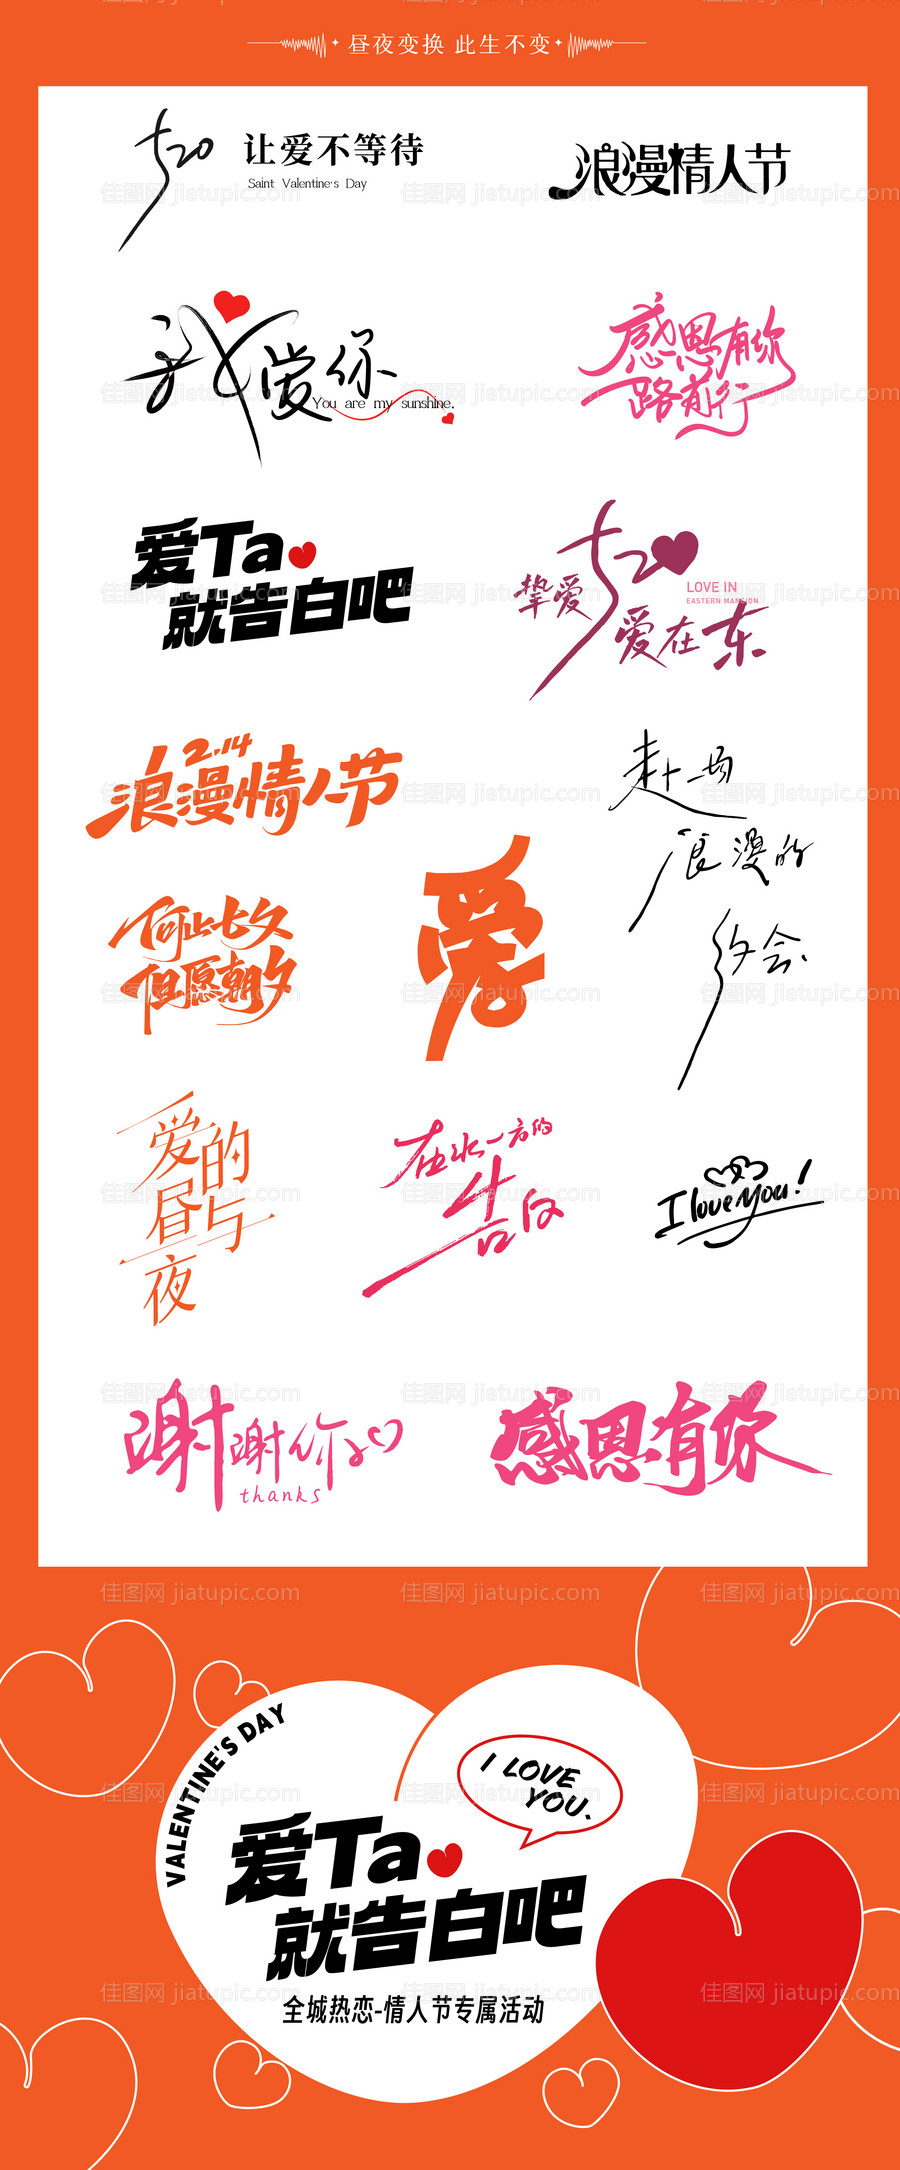 昼夜变换 此生不变
520 让爱不等待
Saint Valentine's Day
浪漫情人节
我爱你
You are my sunshine.
感恩有你
一路前行
爱Ta
就告白吧
520
挚爱
LOVE IN
EASTERN MANSION
爱在东
2.14
浪漫情人节
赴一场
浪漫的
约会
何止七夕
但愿朝夕
爱
爱的
昼与
夜
在水一方的
告白
I love you!
谢谢你
thanks
感恩有你
VALENTINE'S DAY
I LOVE
YOU.
爱Ta
就告白吧
全城热恋-情人节专属活动
佳图网 jiatupic.com